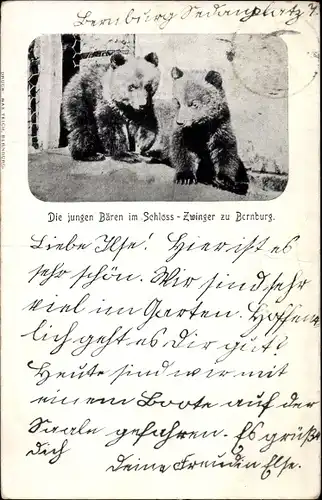 Bernburg Sedanplatz 7.
DRUCK v. MAX TEICH, BERNBURG.
Die jungen Bären im Schloss-Zwinger zu Bernburg.
Liebe Ilse! Hier ist es
sehr schön. Wir sind sehr
viel im Garten. Hoffent
lich geht es Dir gut?
Heute sind wir mit
einem Boote auf der
Saale gefahren. Es grüßt
dich
Deine Freundin Else.